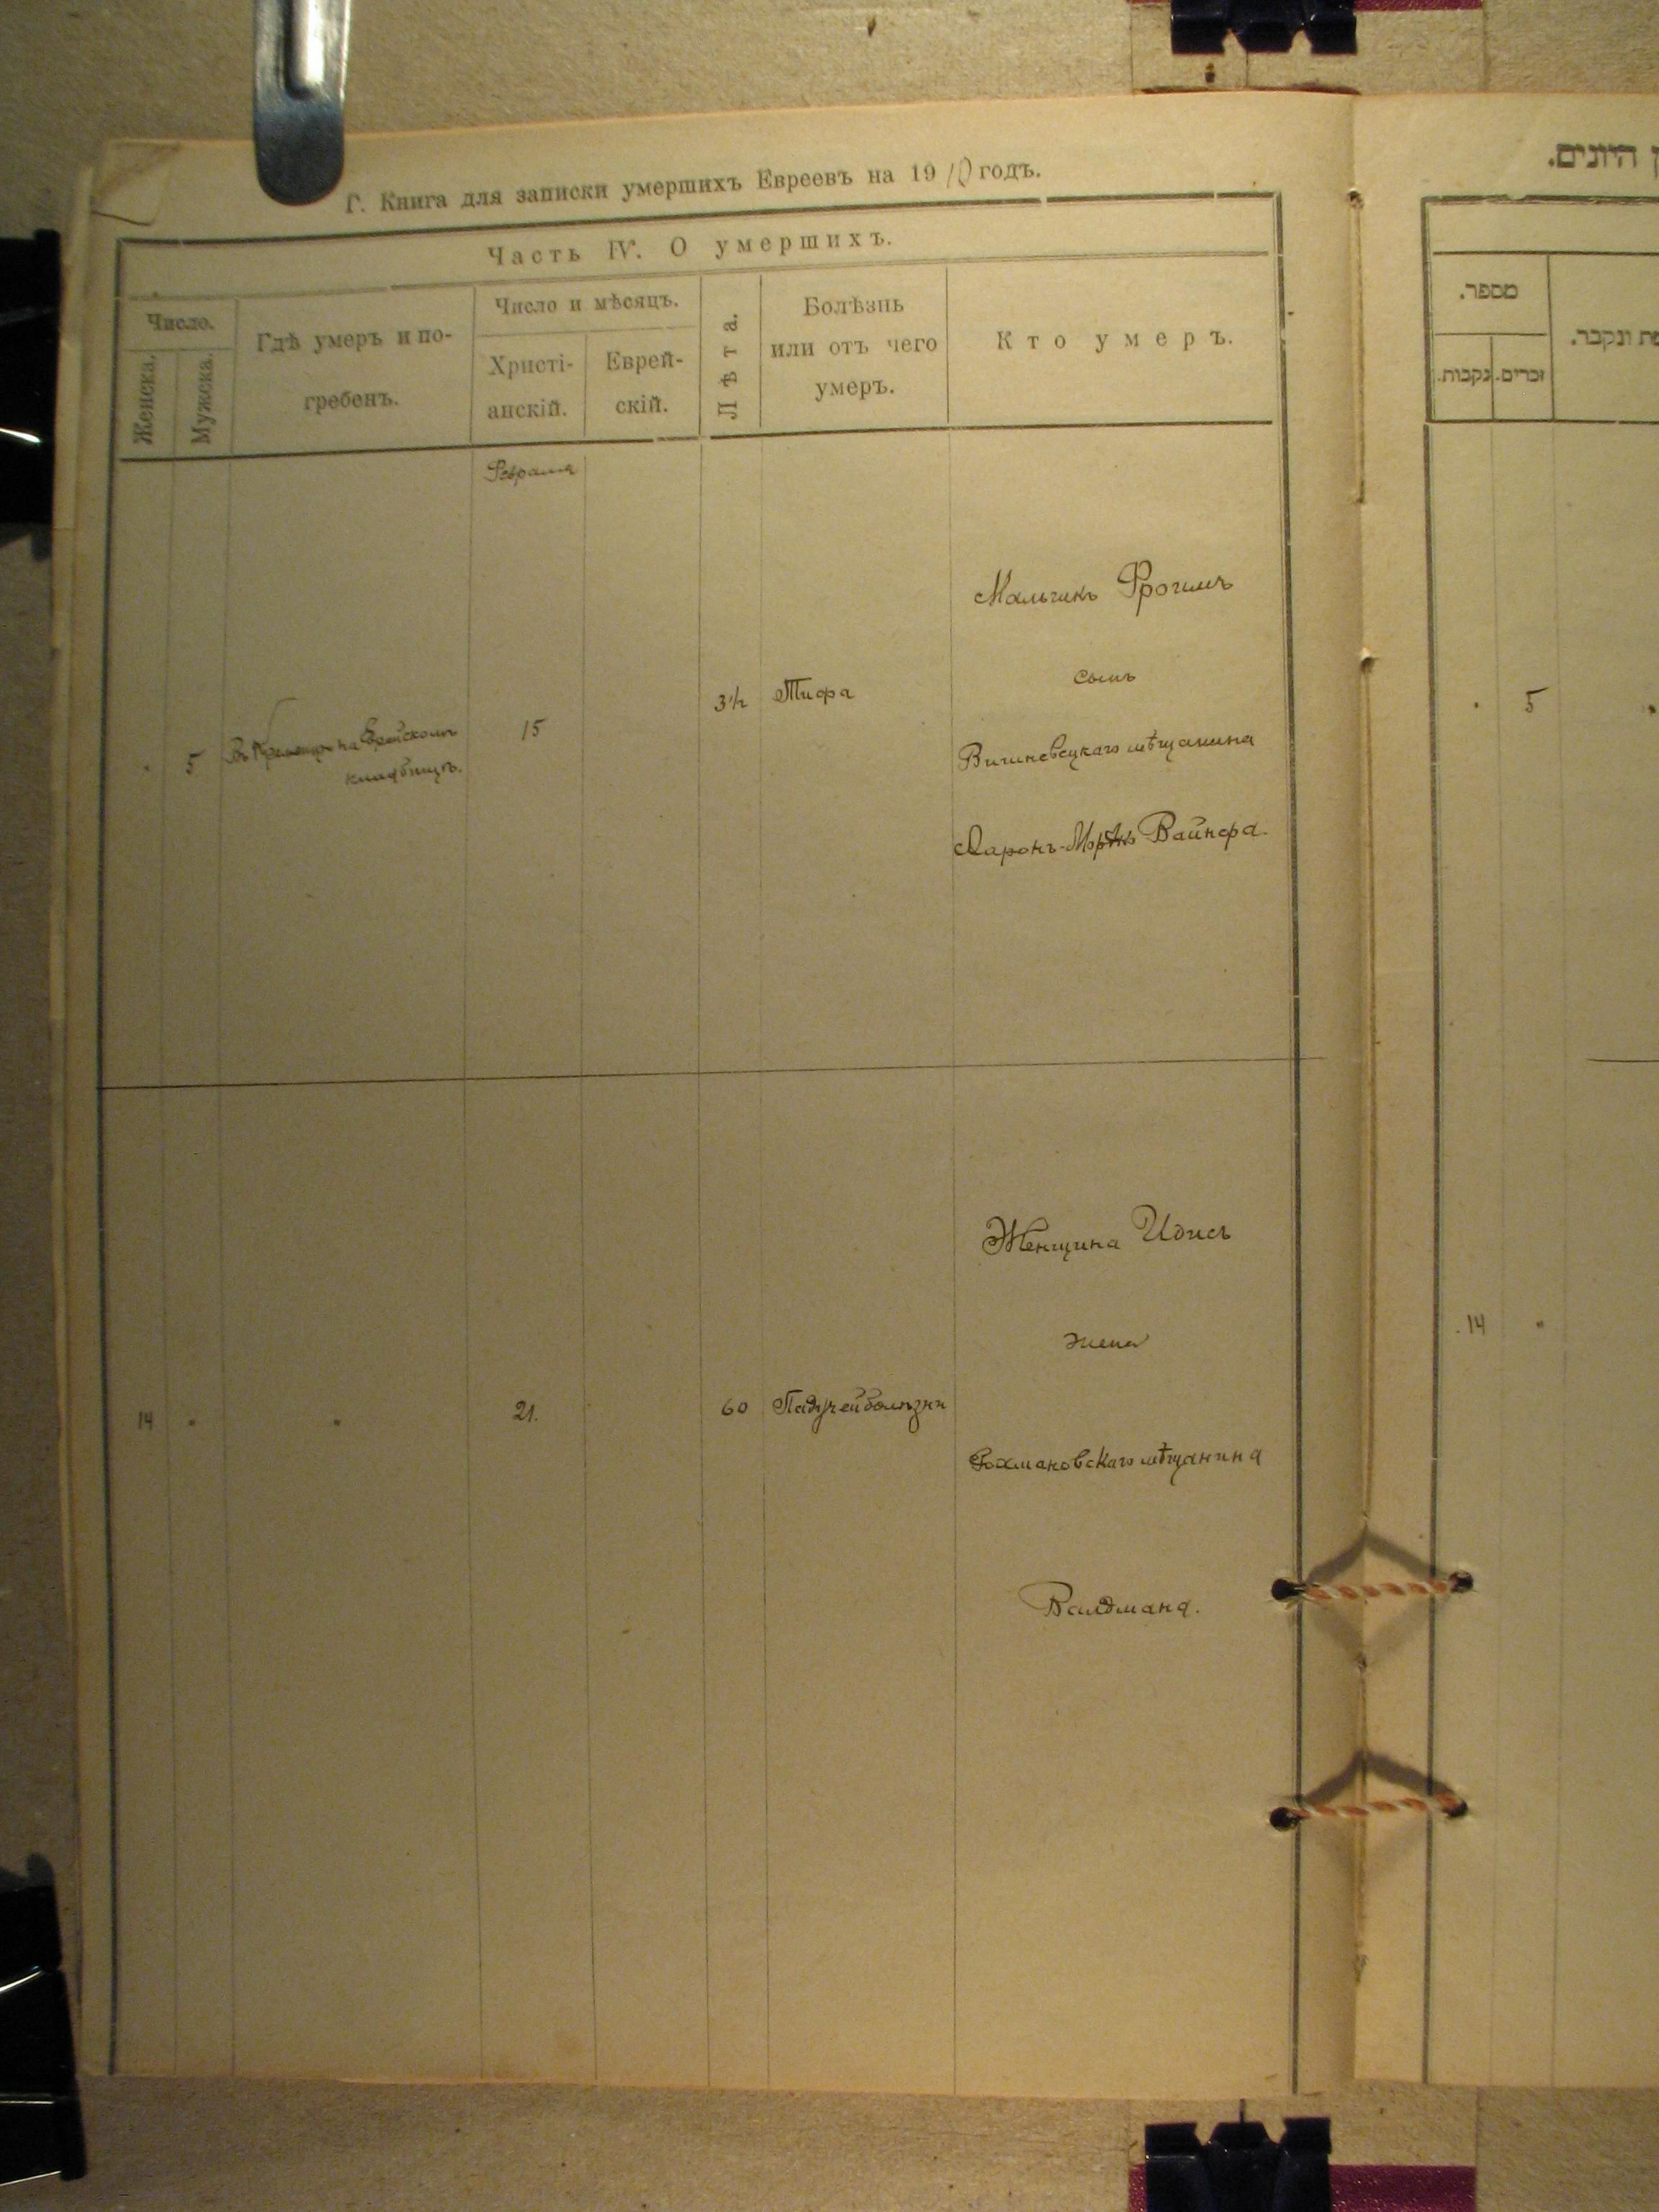 Г. Книга для записки умершихъ Евреевъ на 1910 годъ.
Часть IV. О умершихъ.
Число.
Женска.
Мужска.
Гдѣ умеръ и по-
гребенъ.
Число и мѣсяцъ.
Христі-
анскій.
Еврей-
скій.
Лѣта.
Болѣзнь
или отъ чего
умеръ.
Кто умеръ.
Февраля
5
Въ Кременцѣ на Еврейскомъ
кладбищѣ.
15
3½
Тифа
Мальчикъ Фроимъ
сынъ
Вишневецкаго мѣщанина
Ааронъ- Вайнера.
14
21.
60
Падучей болѣзни
Женщина Идисъ
жена
Рохмановскаго мѣщанина
Валдмана.
היונים.
מספר.
זכרים.
נקבות.
ונקבר.
5
14